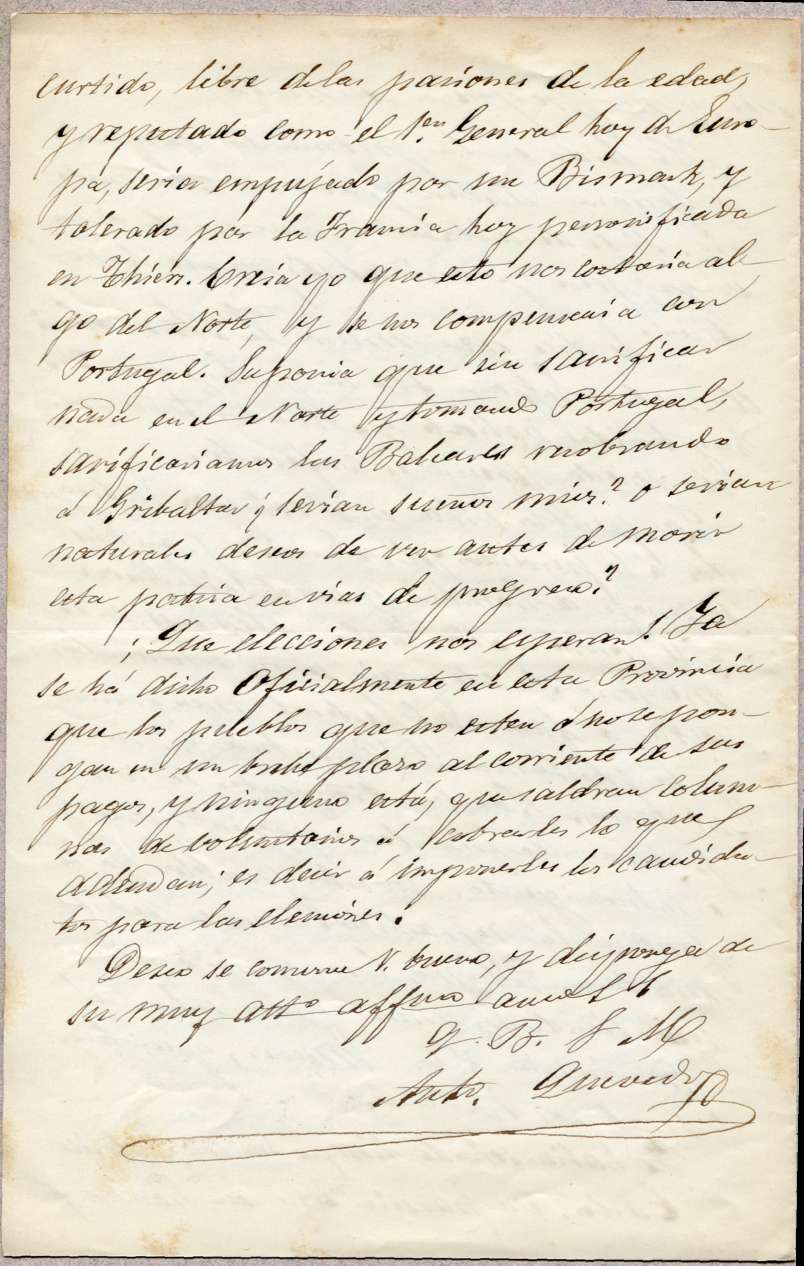 curtido, libre de las pasiones de la edad,
y reputado como el 1.er General hoy de Euro-
pa, seria empujado por un Bismark, y
tolerado por la Francia hoy personificada
en Thiers. Creia yo que esto nos costaria al-
go del Norte, y se nos compensaria con
Portugal. Suponia que sin sacrificar
nada en el Norte y tomando Portugal,
sacrificariamos las Baleares recobrando
á Gribaltar ¿serian sueños mios? o serian
naturales deseos de ver antes de morir
esta patria en vias de progreso?
¡Que elecciones nos esperan! Ya
se há dicho Oficialmente en esta Provincia
que los pueblos que no esten ó no se pon-
gan en un brebe plazo al corriente de sus
pagos, y ninguno está, que saldran colum-
nas de voluntarios á cobrarles lo que
adeudan; es decir á imponerles los candida-
tos para las elecciones.
Deseo se conserve V. bueno, y disponga de
su muy atto affmo
q. B. S M
Anto. Quevedo